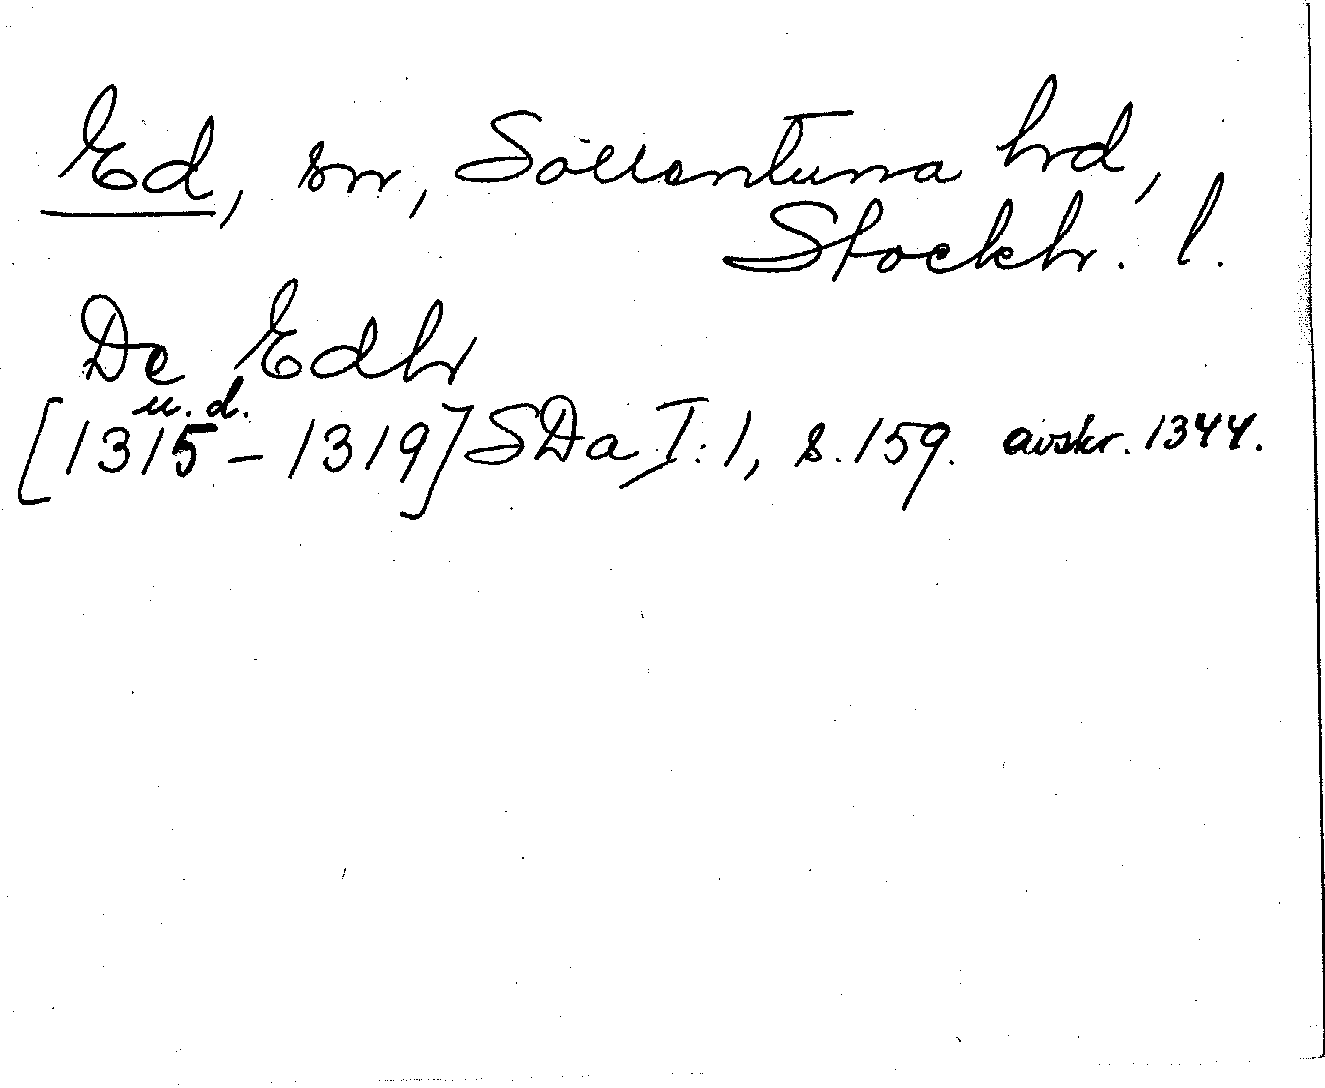 Ed, sn, Sollentuna hd,
Stockh. l.
De Edh
u. d.
[1315 - 1319] SDa I:1, s. 159. avskr. 1344.